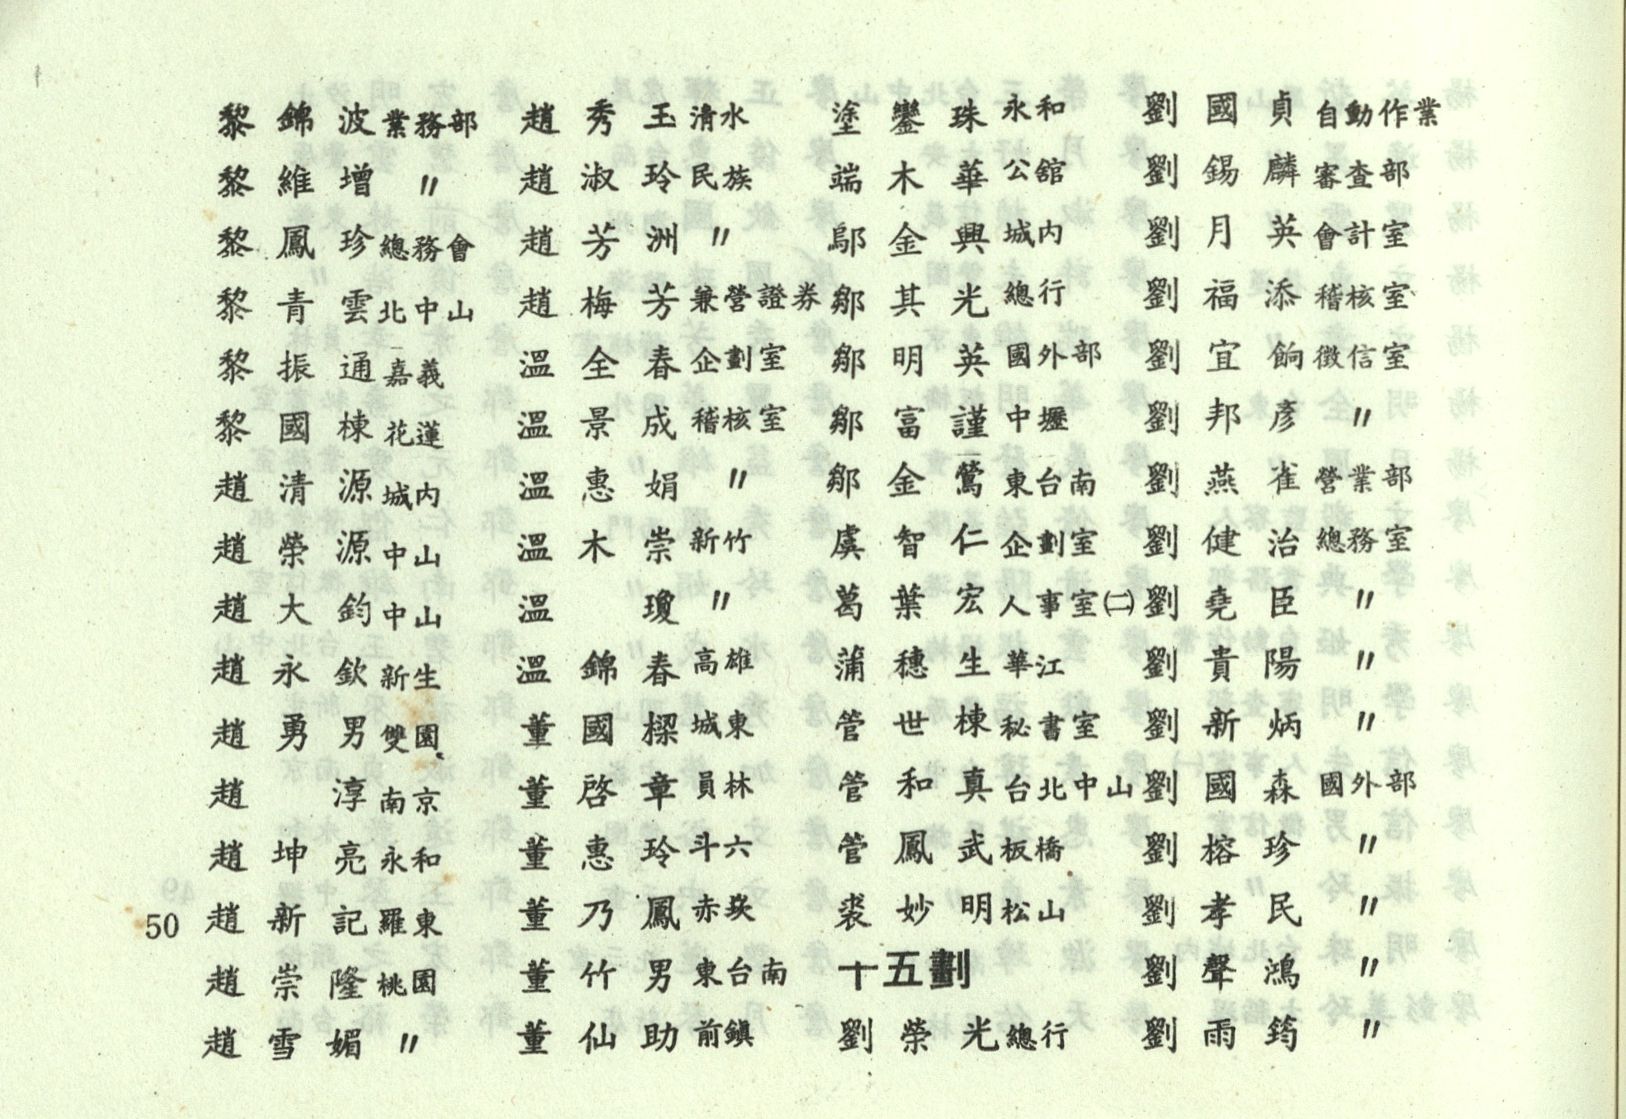 黎錦波業務部
黎維增 〃
黎鳳珍總務會
黎青雲北中山
黎振通嘉義
黎國棟花蓮
趙清源城內
趙榮源中山
趙大鈞中山
趙永欽新生
趙勇男雙園
趙淳南京
趙坤亮永和
趙新記羅東
趙崇隆桃園
趙雪媚 〃
趙秀玉清水
趙淑玲民族
趙芳洲 〃
趙梅芳兼營證券
溫全春企劃室
溫景成稽核室
溫惠娟 〃
溫木崇新竹
溫瓊 〃
溫錦春高雄
董國樑城東
董啓章員林
董惠玲斗六
董乃鳳赤崁
董竹男東台南
董仙助前鎮
塗鑾珠永和
端木華公舘
鄔金興城內
鄒其光總行
鄒明英國外部
鄒富謹中壢
鄒金鶯東台南
虞智仁企劃室
葛葉宏人事室㈡
蒲穗生華江
管世棟秘書室
管和真台北中山
管鳳武板橋
裘妙明松山
十五劃
劉榮光總行
劉國貞自動作業
劉錫麟審查部
劉月英會計室
劉福添稽核室
劉宜餉徵信室
劉邦彥 〃
劉燕雀營業部
劉健治總務室
劉堯臣 〃
劉貴陽 〃
劉新炳 〃
劉國森國外部
劉榕珍 〃
劉孝民 〃
劉聲鴻 〃
劉雨筠 〃
50